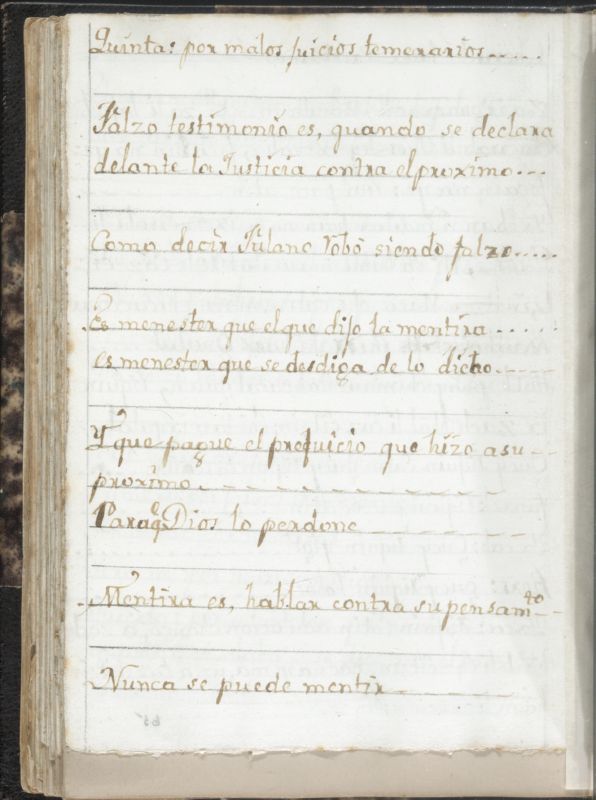 Quinta: por malos juicios temerarios......
Falzo testimonio es, quando se declara
delante la Justicia contra el proximo...
Como decir Fulano robó siendo falzo.....
Es menester que el que dijo la mentira.....
es menester que se desdiga de lo dicho.
Y que pague el prejuicio que hizo a su
proximo
Paraq̃ Dios lo perdone
Mentira es, hablar contra su pensamto
Nunca se puede mentir